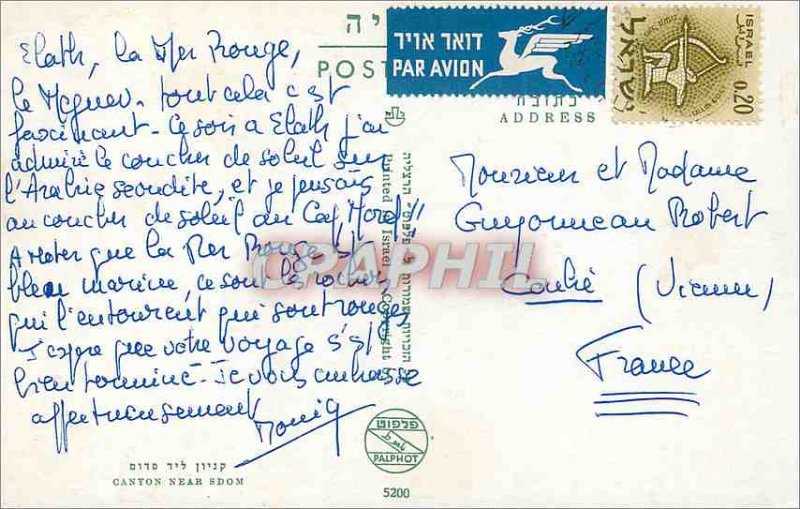 Elath, la Mer Rouge,
le Neguev. tout cela est
fascinant. Ce soir a Elath j'ai
admiré le coucher de soleil sur
l'Arabie seoudite, et je pensais
au coucher de soleil au Cap Nord"
A noter que la Mer Rouge est
bleu marine, ce sont les rochers
qui l'entourent qui sont rouges
J'espère que votre voyage s'est
bien terminé. Je vous embrasse
affectueusement
קניון ליד סדום
CANYON NEAR SDOM
POST
דואר אויר
PAR AVION
ISRAEL
ישראל
0.20
כתובת
ADDRESS
Monsieur et Madame
Guyonneau Robert
Couhé (Vienne)
France
Printed in Israel
Copyright
פלפוט
PALPHOT
5200
CPAPHIL